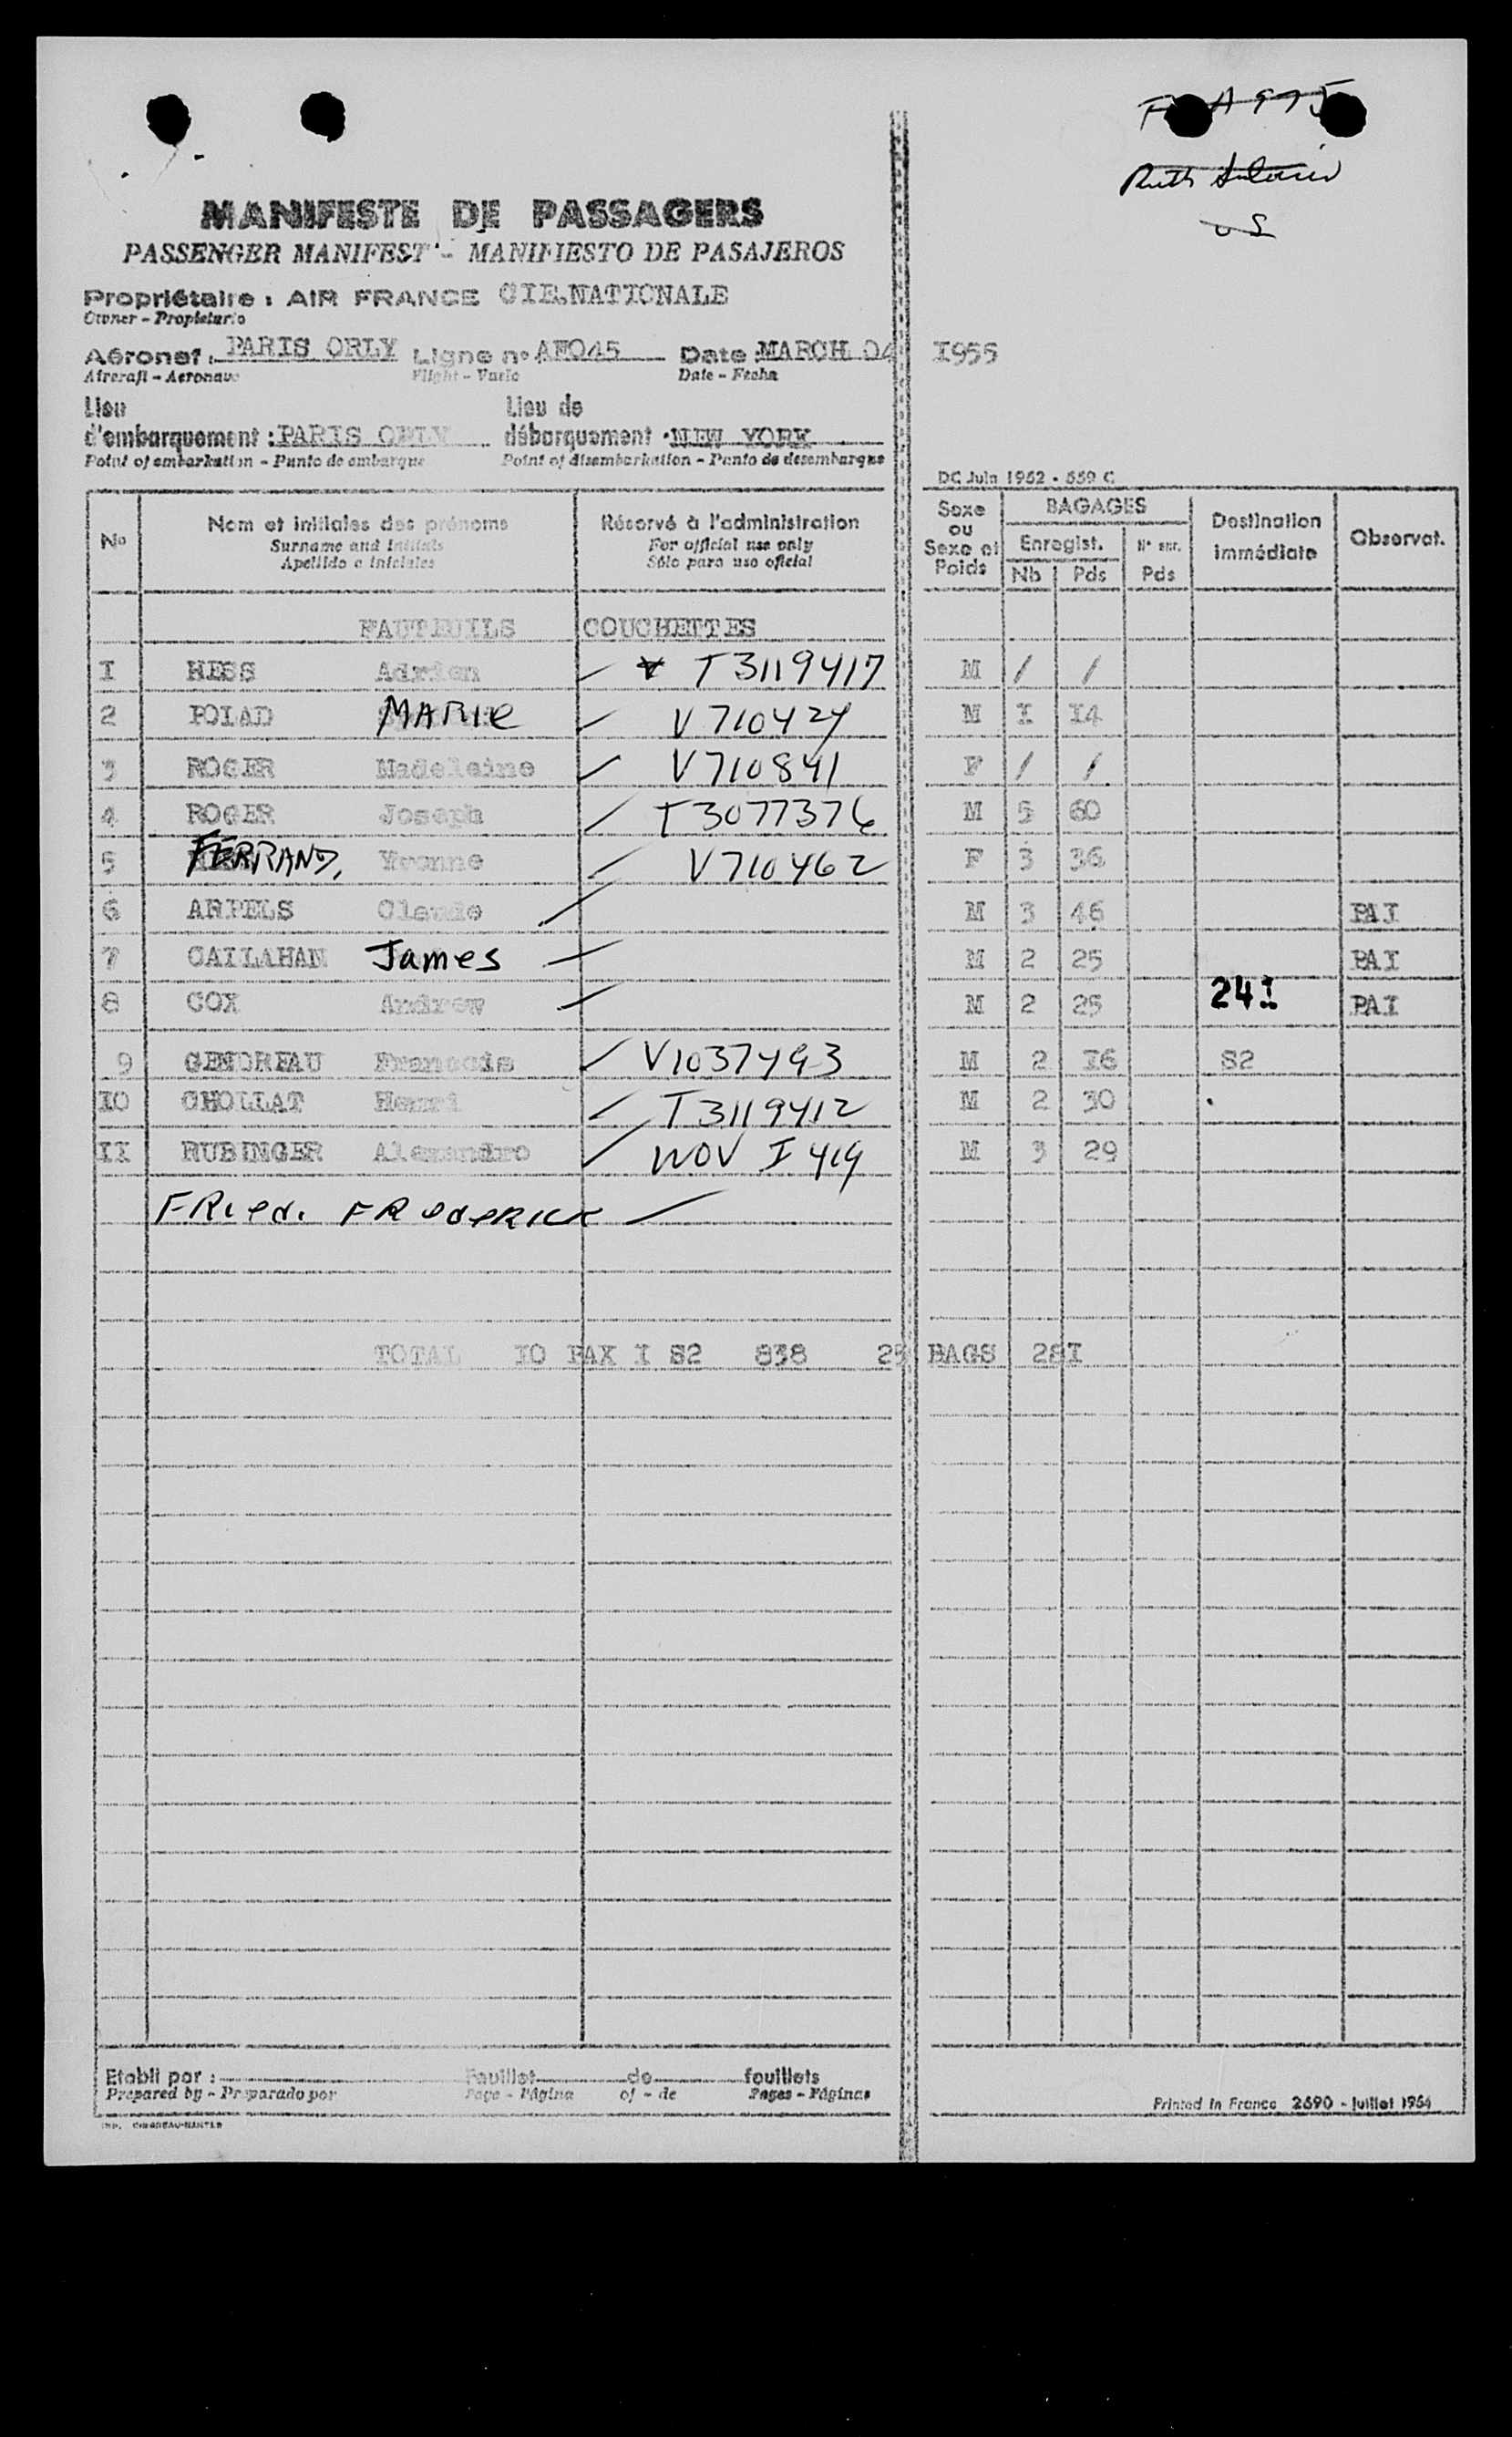 A 975
Ruth
US
MANIFESTE DE PASSAGERS
PASSENGER MANIFEST - MANIFIESTO DE PASAJEROS
Propriétaire : AIR FRANCE CIE.NATIONALE
Owner - Propietario
Aéronef : PARIS ORLY Ligne n° AF045 Date : MARCH 04 I955
Aircraft - Aeronave Flight - Vuelo Date - Fecha
Lieu Lieu de
d'embarquement : PARIS ORLY débarquement : NEW YORK
Point of embarkation - Punto de embarque Point of disembarkation - Punto de desembarque
DC Juin 1952 - 559 C
N° Nom et initiales des prénoms Réservé à l'administration Sexe ou Sexe et Poids BAGAGES Destination immédiate Observat.
Surname and initials For official use only Enregist. N° enr.
Apellido e iniciales Sólo para uso oficial Nb Pds Pds
FAUTEUILS COUCHETTES
I HESS Adrien T3119417 M / /
2 POIAD MARIE V710424 M I I4
3 ROGER Madeleine V710841 F / /
4 ROGER Joseph T3077376 M 5 60
5 FERRAND, Yvonne V710462 F 3 36
6 ARPELS Claude M 3 46 PAI
7 CALLAHAN James M 2 25 PAI
8 COX Andrew M 2 25 24I PAI
9 GENDREAU Francois V1037493 M 2 I6 S2
IO CHOLLAT Henri T3119412 M 2 30
II RUBINGER Alexandro NOV I 419 M 3 29
FRIED. FREDERICK
TOTAL IO PAX I S2 838 25 BAGS 28I
Etabli par : Feuillet de feuillets
Prepared by - Preparado por Page - Página of - de Pages - Páginas
Printed in France 2690 - Juillet 1954